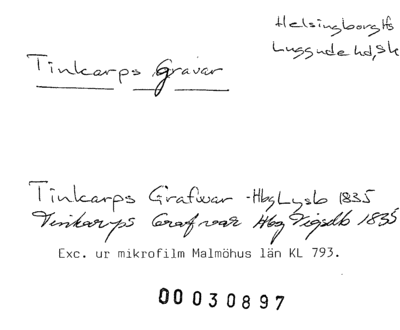 Helsingborg Hfs
Luggude hd, Sk
Tinkarps gravar
Tinkarps Grafwar - Hbg Lysb 1835
Tinkarps Grafvar Hbg Vigsdb 1835
Exc. ur mikrofilm Malmöhus län KL 793.
00030897